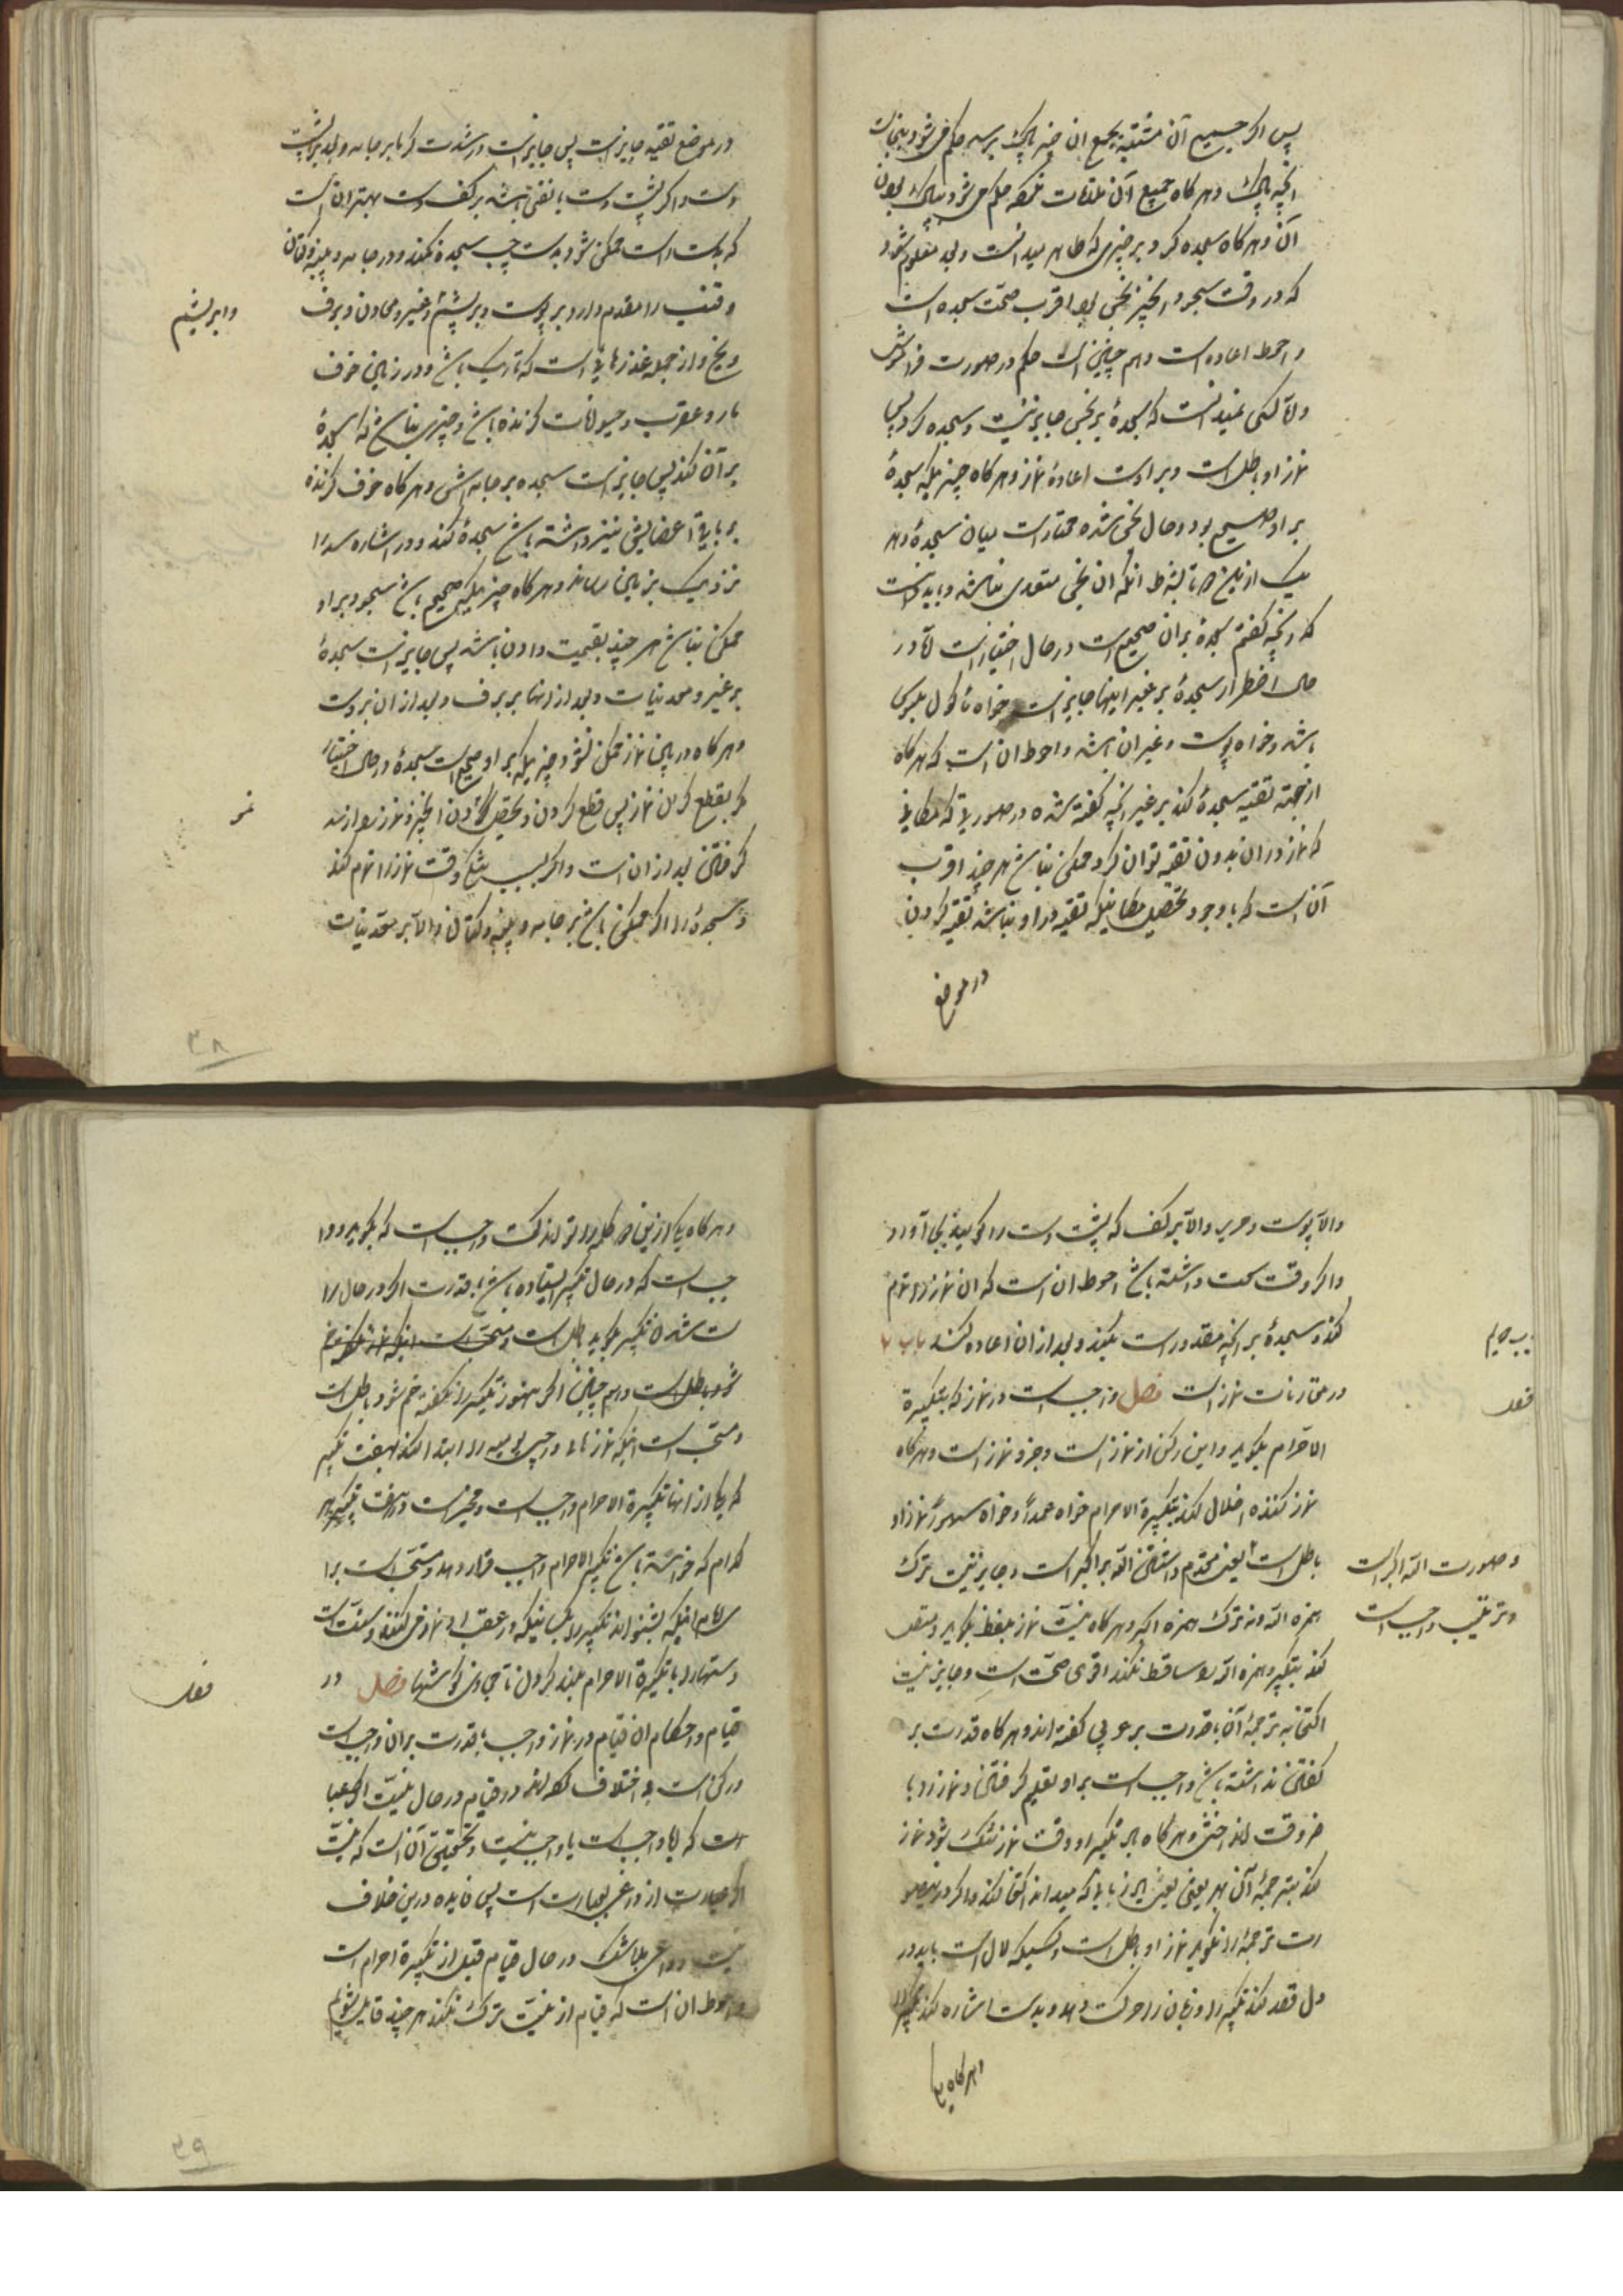 پس اگر جمیع آن مشتبه بجمع آن چیز پاک برسد حکم می شود بنجاست
آنچه پاک و هر گاه جمیع آن ملاقات نکرده حکم می شود بپاک بودن
آن و هر گاه سجده کرد بر چیزی که طاهر میدانست و بعد معلوم شود
که در وقت سجود آنچیز نجس بود اقرب صحّت سجده است
و احوط اعاده است و هم چنین است حکم در صورت فراموش
و امّا کسی نمیدانست که سجدهٔ بر نجس جایز نیست و سجده کرد پس
نماز او باطل است و بر اوست اعادهٔ نماز و هر گاه چیزیکه سجدهٔ
بر او صحیح بود در حال نجس شده مختار است میان سجدهٔ بهر
یک ازین بشرط آنکه آن نجس متعدی نباشد و باید دانست
که آنچه گفتم سجدهٔ بر آن صحیح است در حال اختیار است امّا در
حال اضطرار سجدهٔ بر غیر اینها جایز است خواه ماکول ملبوس
باشد و خواه پوست و غیر آن باشد و احوط آن است که هر گاه
از جهة تقیه سجدهٔ کند بر غیر آنچه گفته شده در صورتی که مکانی
که نماز در آن بدون تقیه توان کرد ممکن نباشد هر چند اقرب
آن است که با وجود تحصیل مکانیکه تقیه در او نباشد تقیه کردن
در موضع
در موضع تقیه جایز است پس جایز است در شدت گرما بر جامه و بعد بر پشت
دست و اگر پشت دست باشد بر کف دست بهتر آن است
که بدست راست ممکن شود بدست چپ سجده نکند و در جامه و پنبه و کتان
و قنب را مقدم دارد بر پوست و بر پشم و غیر و معادن و برف
وابریشم
و یخ و از جمله عذرهائی است که تاریک باشد و در زمین خوف
مار و عقرب و حیوانات گزنده باشد و چیزی نباشد که سجدهٔ
بر آن کند پس جایز است سجده بر جامه اش و هر گاه خوف گزنده
بر باقی اعضایش نیز داشته باشد سجدهٔ نکند و در اشاره سر را
نزدیک بزمین رساند و هر گاه چیزیکه صحیح باشد سجود بر او
ممکن نباشد هر چند بقیمت دادن باشد پس جایز است سجدهٔ
بر غیر و معدنیات و بعد از اینها بر برف و بعد از آن بر دست
و هر گاه در بین نماز ممکن نشود چیزیکه بر او صحیح است سجدهٔ در حال اختیار
مگر بقطع کردن نماز پس قطع کردن و تحصیل کردن آنچیز و نماز را از سر
گرفتن بعد از آن است و اگر بسبب تنگی وقت نماز را تمام کند
و سجدهٔ را اگر ممکن باشد بر جامه و پنبه و کتان و الّا بر معدنیات
۳۸
والّا پوست و حریر والّا بر کف که پشت دست را گویند بجا آورد
و اگر وقت سعت داشته باشد احوط آن است که آن نماز را تمام
کند و سجدهٔ بر آنچه مقدور است بکند و بعد از آن اعاده کند باب
در مقارنات نماز است فصل واجب است در نماز که تکبیرة
الاحرام بگوید و این رکن از نماز است و جزو نماز است و هر گاه
نماز کننده اخلال کند بتکبیرة الاحرام خواه عمداً و خواه سهواً نماز او
باطل است یعنی مقدم داشتن الله بر اکبر است و جایز نیست ترک
و صورت الله اکبر است
و ترتیب واجب است
همزه الله و نه ترک همزه اکبر و هر گاه نیّت نماز بلفظ بگوید و متصل
کند بتکبیر و همزه الله را ساقط نکند اقوی صحّت است و جایز نیست
اکتفا بترجمهٔ آن با قدرت بر عربی گفته اند و هر گاه قدرت بر
گفتن نداشته باشد واجب است بر او تعلیم گرفتن و نماز را با
خر وقت انداختن و هر گاه یاد نگیرد و وقت نماز تنگ شود نماز
کند بترجمهٔ آن بهر زبانی که میداند اکتفا کند و اگر در
رت ترجمهٔ را نگوید نماز او باطل است و کسیکه لال است باید در
دل قصد کند تکبیر را و زبان را حرکت دهد و بدست اشاره کند
و هر گاه یک
و هر گاه یک ازین دو کلمه را تواند گفت واجب است که بگوید و وا
جب است که در حال تکبیر ایستاده باشد با قدرت اگر در حال را
ست شدن تکبیر بگوید باطل است و مستحب است
شود باطل است و هم چنین اگر هنوز تکبیر را نگفته خم شود باطل است
و مستحب است اینکه نمازهای واجبی یومیه را ابتدا کند بهفت تکبیر
که یکی از آنها تکبیرة الاحرام واجب است و مخیر است در هفت تکبیر هر
کدام که خواسته باشد تکبیر الاحرام واجب قرار دهد و مستحب است برا
ی امام اینکه بشنواند تکبیر را بکسانیکه در عقب او نماز می کنند و سنّت است
دستها را با تکبیرة الاحرام بلند کردن تا محاذی گوشها فصل در
قیام و احکام آن قیام در نماز واجب با قدرت بر آن واجب است
و رکن است و اختلاف کرده اند در قیام در حال نیّت
است که آیا واجب است یا واجب نیست و تحقیق آن است که نیّت
اگر عبارت از داعی است پس فایده درین خلاف
نیست و داعی بلا شک در حال قیام قبل از تکبیرة احرام است
و احوط آن است که قیام از نیّت ترک نکند هر چند قایل شویم
۳۹